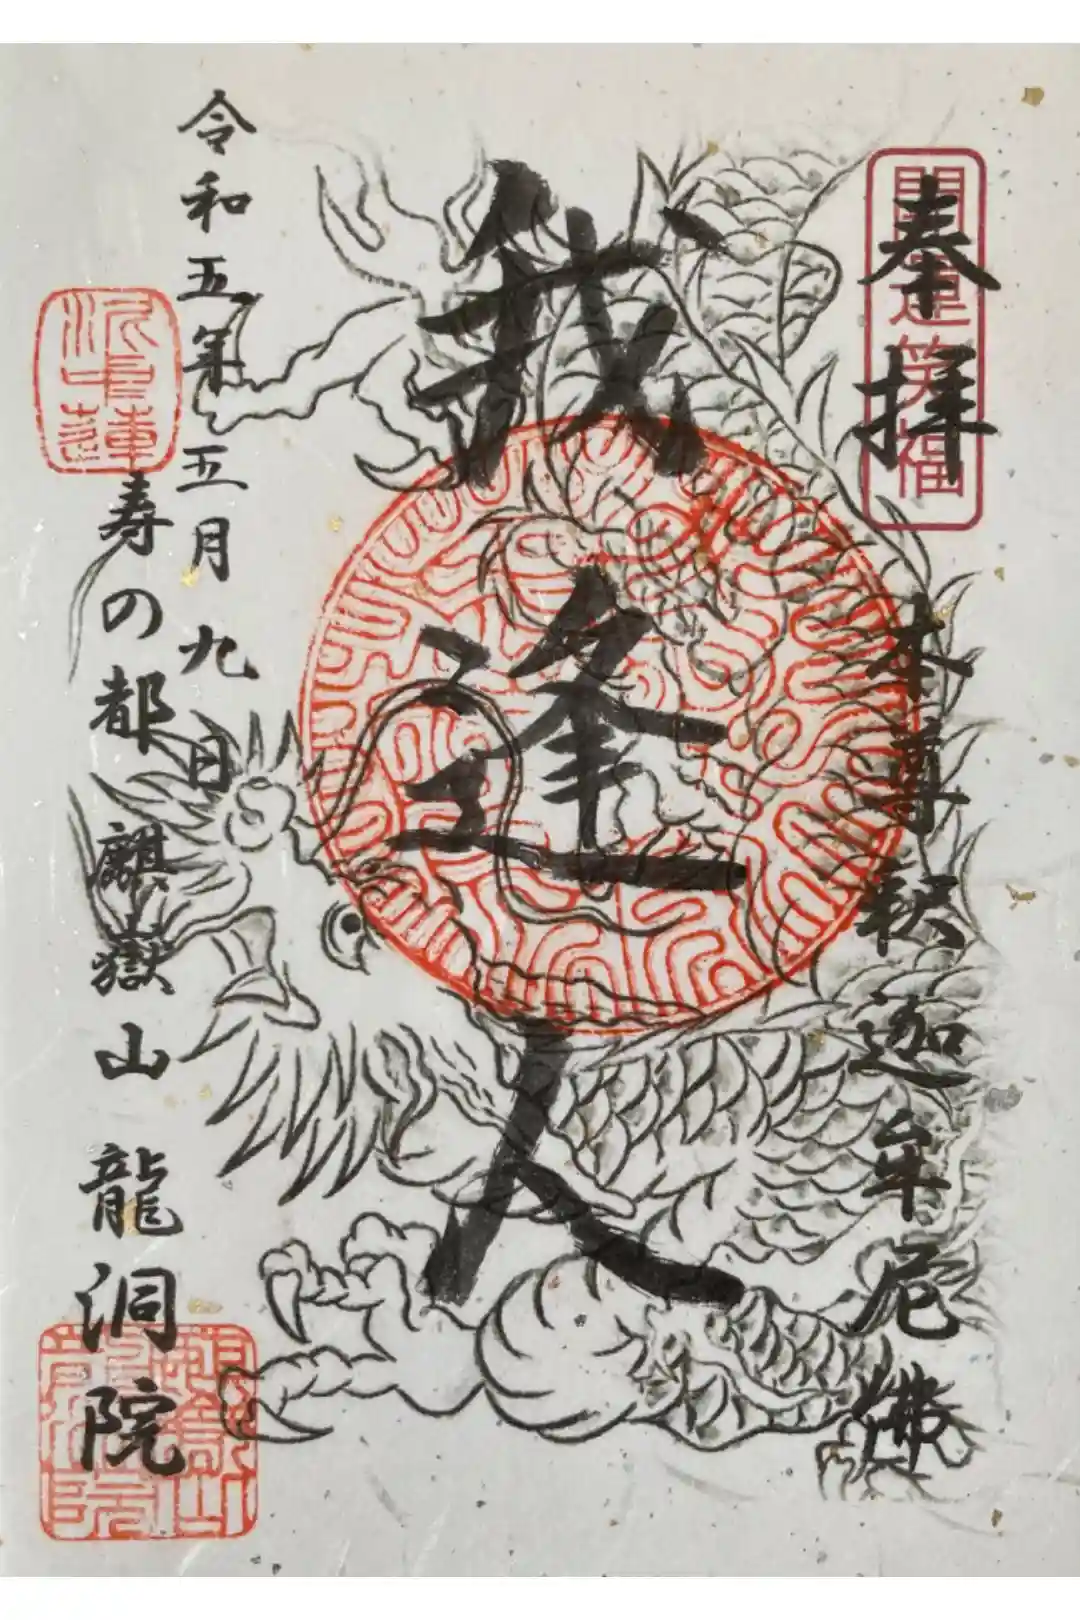 奉拝
開運笑福
本尊釈迦牟尼佛
我逢人
令和五年五月九日
寿の都 麒嶽山 龍洞院